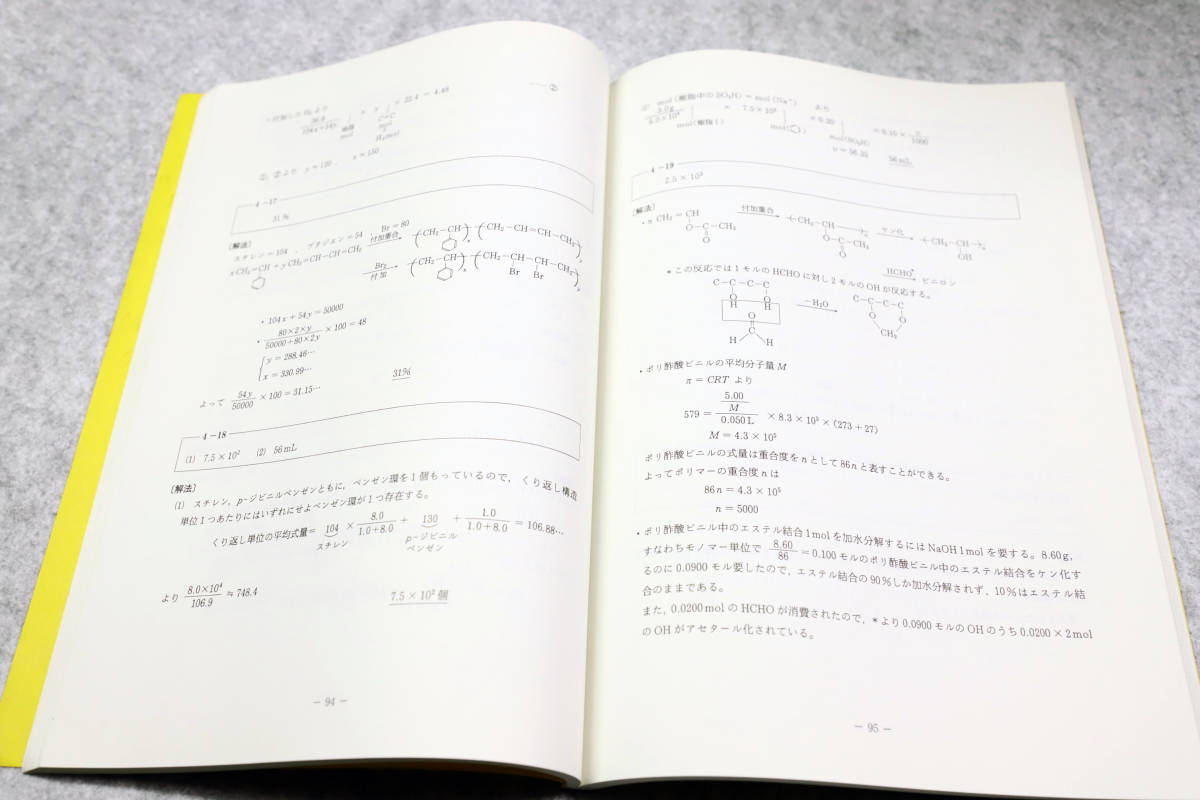 ……②
× 22.4 = 4.48
C=C
mol
H₂mol
①, ②より y ≒ 120 , x ≒ 150
4-17
31%
〔解法〕
スチレン=104 , ブタジエン=54 Br=80
xCH₂=CH + yCH₂=CH-CH=CH₂ 付加重合 (CH₂-CH)ₓ(CH₂-CH=CH-CH₂)ᵧ
Br₂ 付加 (CH₂-CH)ₓ(CH₂-CH-CH-CH₂)ᵧ
Br Br
・104x + 54y = 50000
・80×2×y / 50000+80×2y × 100 = 48
y = 288.46…
x = 330.99…
よって 54y / 50000 × 100 = 31.15… 31%
4-18
(1) 7.5 × 10² (2) 56 mL
〔解法〕
(1) スチレン, p-ジビニルベンゼンともに, ベンゼン環を1個もっているので, くり返し構造
単位1つあたりにはいずれにせよベンゼン環が1つ存在する。
くり返し単位の平均式量= 104 × 8.0 / 1.0+8.0 + 130 × 1.0 / 1.0+8.0 = 106.88…
スチレン p-ジビニル
ベンゼン
より 8.0×10⁴ / 106.9 ≒ 748.4 7.5 × 10² 個
- 94 -
mol (樹脂中のSO₃H) = mol (Na⁺) より
5.0g / 8.0×10⁴ × 7.5 × 10² × 0.20 = 0.10 × v / 1000
mol(樹脂1) mol(SO₃H)
56 mL
4-19
2.5 × 10³
〔解法〕
・n CH₂=CH 付加重合 (CH₂-CH)ₙ ケン化 (CH₂-CH)ₙ
O-C-CH₃ O-C-CH₃ OH
O O
HCHO* ビニロン
*この反応では1モルのHCHOに対し2モルのOHが反応する。
C-C-C-C -H₂O C-C-C-C
O O O O
H H CH₂
O
C
H H
・ポリ酢酸ビニルの平均分子量M
π = CRT より
579 = 5.00 / M / 0.050 L × 8.3 × 10³ × (273 + 27)
M = 4.3 × 10⁵
ポリ酢酸ビニルの式量は重合度をnとして86nと表すことができる。
よってポリマーの重合度nは
86n = 4.3 × 10⁵
n = 5000
・ポリ酢酸ビニル中のエステル結合1molを加水分解するにはNaOH 1molを要する。8.60g,
すなわちモノマー単位で 8.60 / 86 = 0.100モルのポリ酢酸ビニル中のエステル結合をケン化す
るのに0.0900モル要したので, エステル結合の90%しか加水分解されず, 10%はエステル結
合のままである。
また, 0.0200 molのHCHOが消費されたので, *より0.0900モルのOHのうち0.0200 × 2 mol
のOHがアセタール化されている。
- 95 -